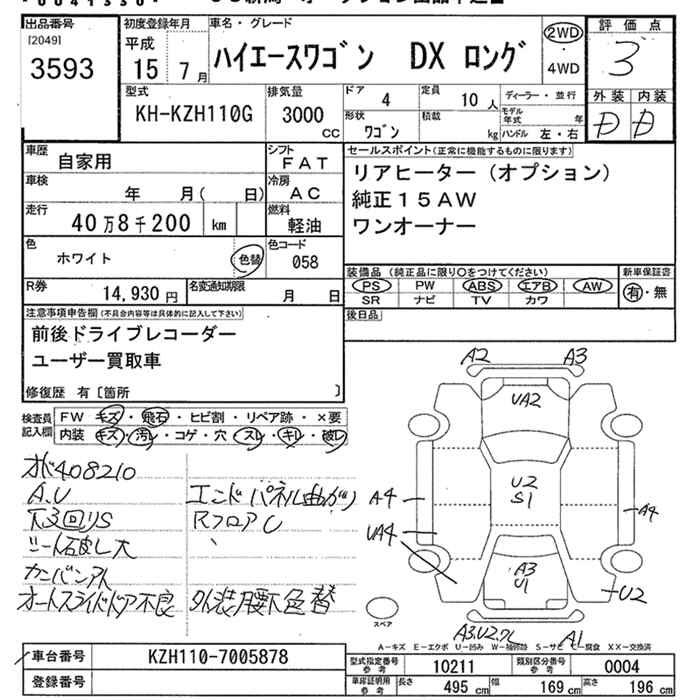 出品番号
[2049]
3593
初度登録年月
平成
15 年 7 月
車名・グレード
ハイエースワゴン DX ロング
2WD
4WD
評価点
3
外装 内装
D D
型式
KH-KZH110G
排気量
3000
cc
ドア 4
形状 ワゴン
定員 10 人
積載 kg
ディーラー・並行
モデル年式 年
ハンドル 左・右
車歴
自家用
シフト
FAT
車検
年 月( 日)
冷房
AC
走行
40万8千200 km
燃料
軽油
色
ホワイト
色替
色コード
058
R券
14,930 円
名変通知期限
月 日
セールスポイント(正常に機能するものに限ります)
リアヒーター(オプション)
純正15AW
ワンオーナー
装備品 (純正品に限り○をつけてください)
新車保証書
PS PW ABS エアB AW
有・無
SR ナビ TV カワ
後日品
注意事項申告欄(不具合内容等は具体的に記入して下さい)
前後ドライブレコーダー
ユーザー買取車
修復歴 有[箇所 ]
検査員記入欄
FW キズ・飛石・ヒビ割・リペア跡・×要
内装 キズ・汚レ・コゲ・穴・スレ・キレ・破レ
オド408210
A.U
下回りS
シート破し大
カンバンアト
オートスライドドア不良
エンドパネル曲がり
RフロアU
外装腰下色替
A2 A3
UA2
U2
S1
A4
UA4
A4
A3
U1
U2
A1
スペア
A-キズ E-エクボ U-凹み W-補修跡 S-サビ C-腐食 XX-交換済
車台番号
KZH110-7005878
登録番号
型式指定番号
参考
10211
類別区分番号
参考
0004
車庫証明用
参考
長さ 495 cm
幅 169 cm
高さ 196 cm